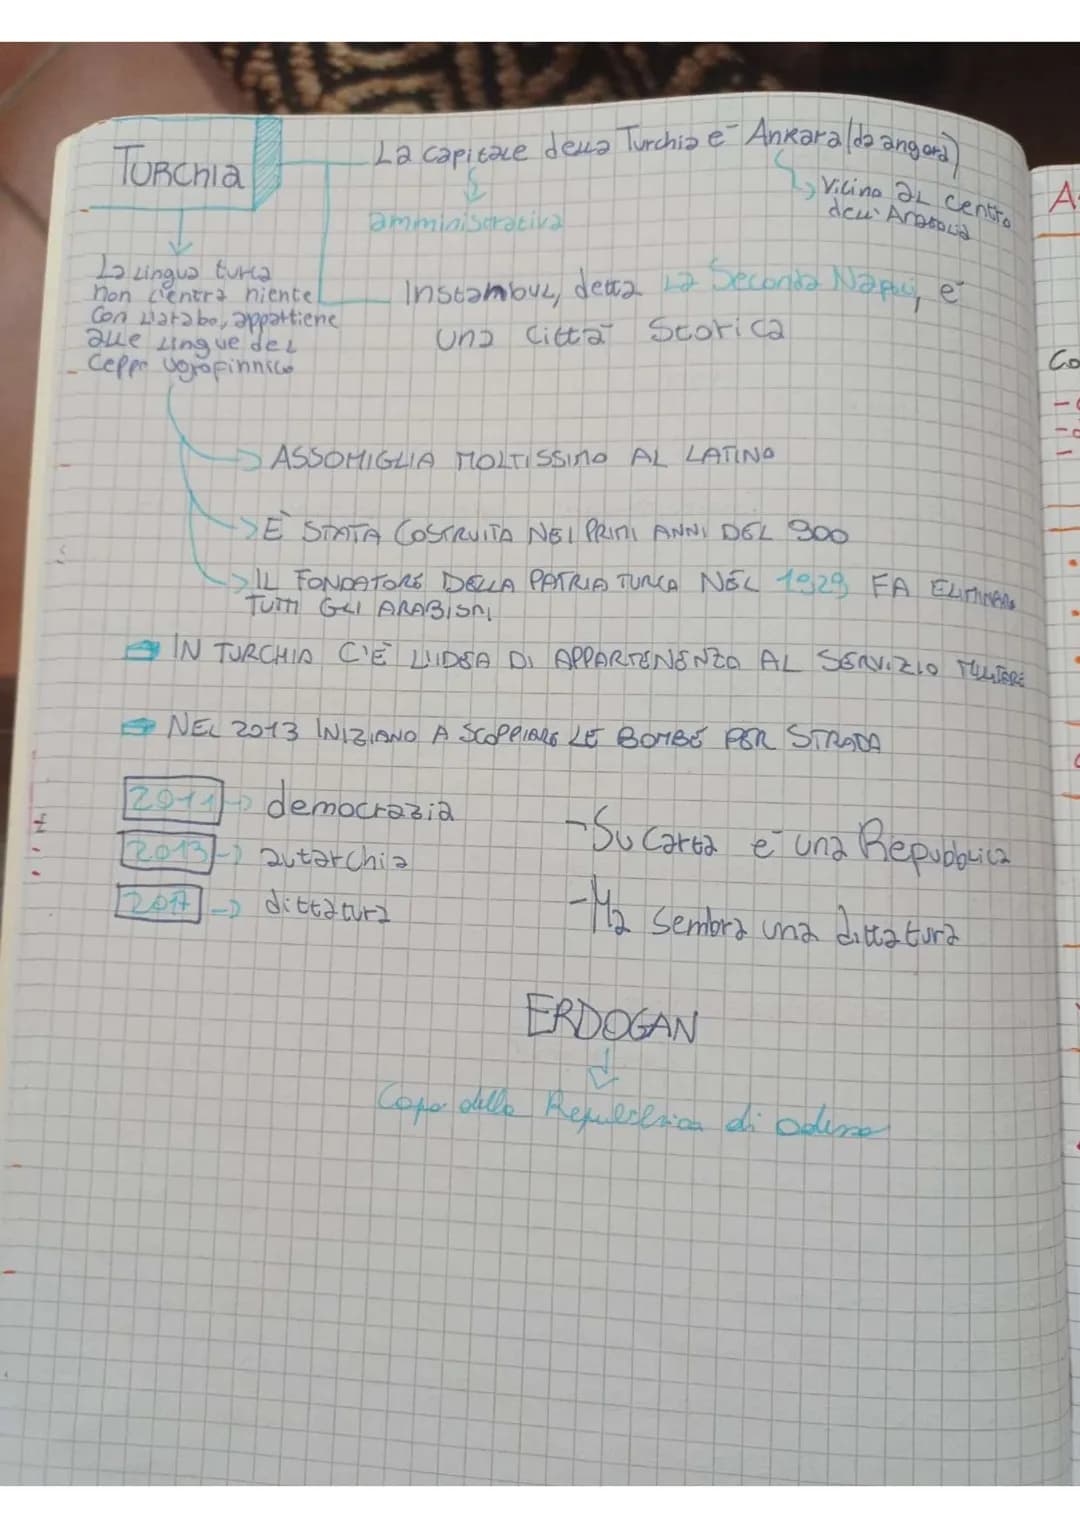 TURCHIA
La capitale della Turchia e' Ankara (da angora)
amministrativa
Vicino al centro
dell'Anatolia
La lingua turca
non c'entra niente
con l'arabo, appartiene
alle lingue del
ceppo ugrofinnico
Instambul, detta La Seconda Napoli, e'
una città storica
ASSOMIGLIA MOLTISSIMO AL LATINO
E' STATA COSTRUITA NEI PRIMI ANNI DEL 900
IL FONDATORE DELLA PATRIA TURCA NEL 1929 FA ELIMINARE
TUTTI GLI ARABISMI
IN TURCHIA C'E' L'IDEA DI APPARTENENZA AL SERVIZIO MILITARE
NEL 2013 INIZIANO A SCOPPIARE LE BOMBE PER STRADA
2011 -> democrazia
2013 -> autarchia
2017 -> dittatura
- Su carta e' una Repubblica
- Ma sembra una dittatura
ERDOGAN
Capo della Repubblica di adesso
A
Co